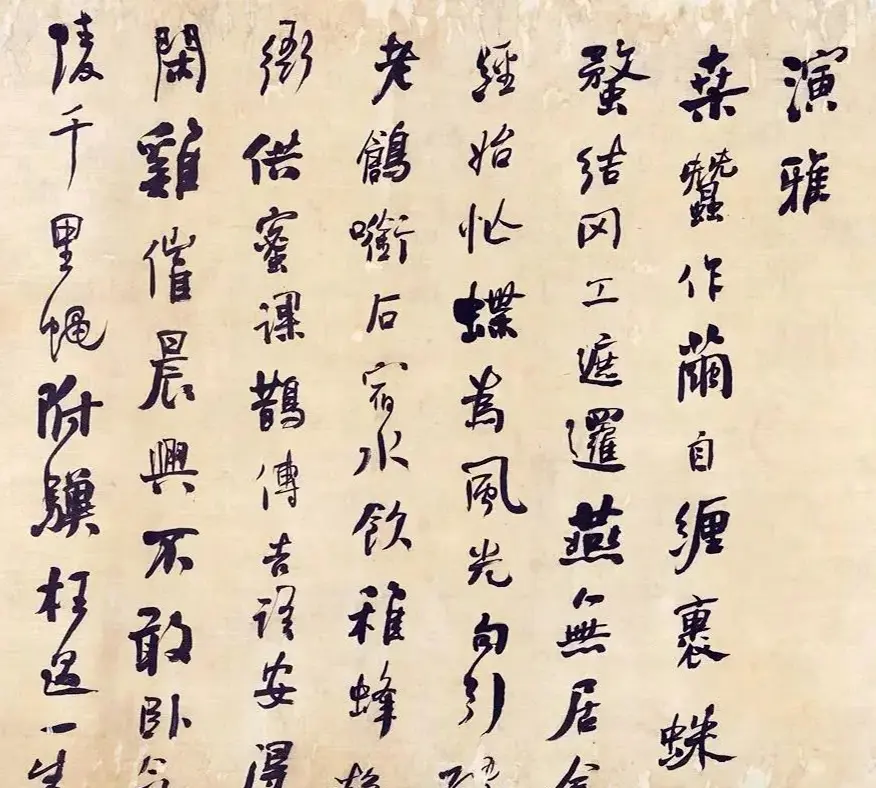 演雅
桒蠶作繭自纏裹蛛
蝥結网工遮邏燕無居
經始忙蝶為風光句引
老鶬㘅石宿水飲稚蜂
衙供蜜課鵲傳吉語安得
閑雞催晨興不敢臥
陵千里蠅附驥枉過一生